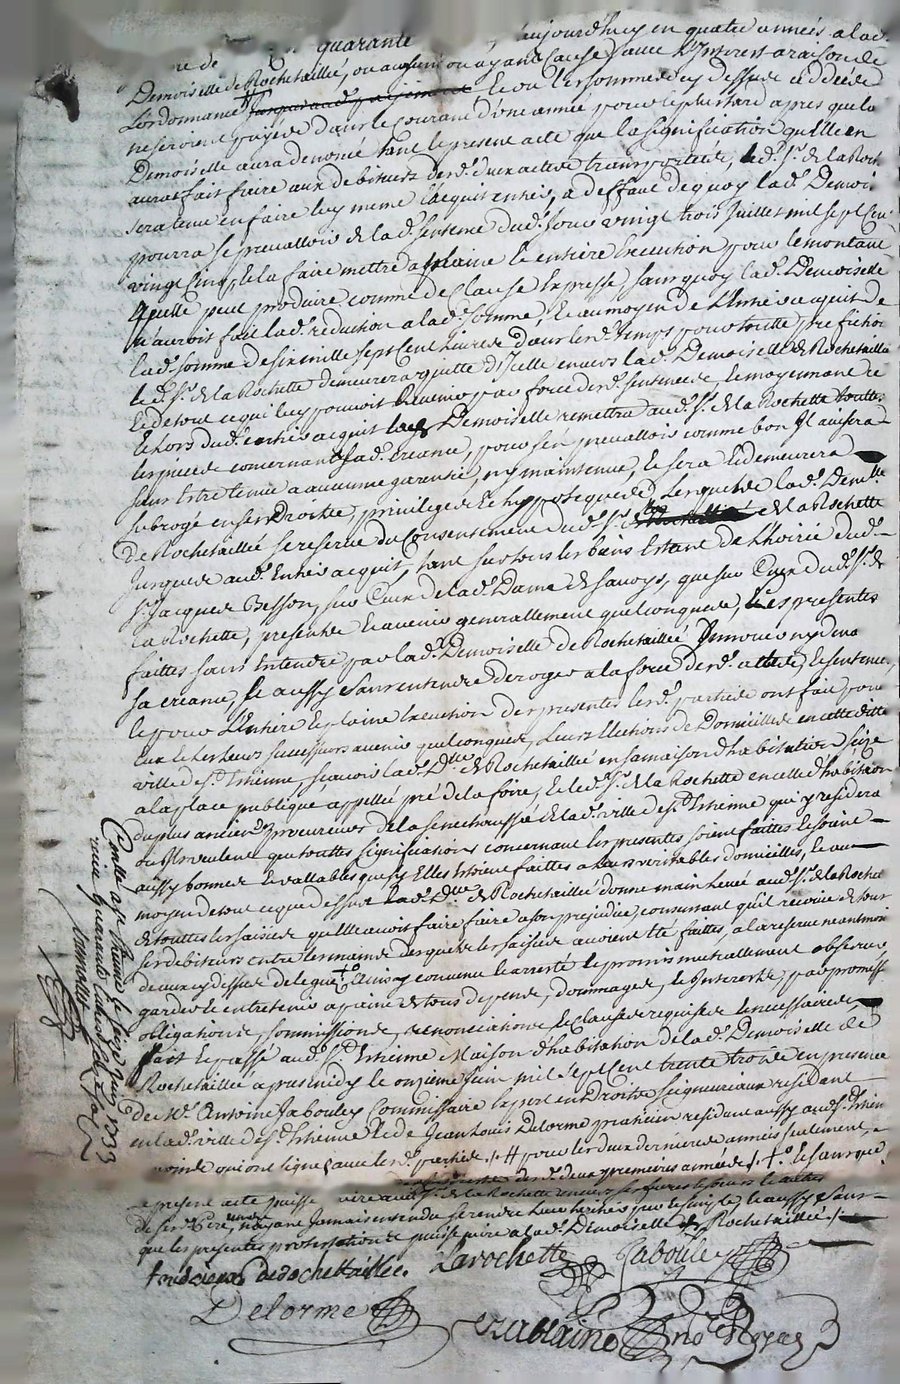 quarante aujourd'huy en quatre années a lad.
Demoiselle de Rochetaillée, ou ayant cause sauf l'Interest a raison de
L'ordonnance et les sommes cy dessus cedées
ne seroient payées dans le courant d'une année pour le plus tard apres que la
Demoiselle aura denoncé tant le present acte que la signification qu'elle en
auroit fait faire aux debiteurs desd. deux actes transportées, led. Sr. de la Roch
sera tenu en faire luy meme l'acquittement, a deffaut de quoy lad. Demoi
pourra se prevalloir de lad. sentence dud. jour vingt trois Juillet mil sept Cent
vingt Cinq et la faire mettre a plaine et entiere Execution pour le montant
quelle peut produire comme de Clause Expresse, sans quoy lad. Demoiselle
n'auroit fait lad. reduction a lad. somme, et au moyen de l'Entier acquit de
lad. somme de six mille sept Cent livres dans led. temps pour toutte prefiction
led. Sr. de la Rochette demeurera quitte d'Icelle envers lad. Demoiselle de Rochetaillée
et de tout ce qui luy pouvoit Revenir par force desd. sentences, et moyennant ce
et lors dud. entier acquit lad. Demoiselle remettra aud. Sr. de la Rochette touttes
les pieces concernant sad. Creance, pour s'en prevalloir comme bon Il avisera
sans Estre tenue a aucune garentie, ny maintenue, et sera et demeurera
subrogé en ses Droits, privileges et hyppoteques lesquels lad. Demlle
de Rochetaillée se reserve du Consentement dud. Sr. de la Rochette
Jusques aud. Entier acquit, tant sur tous les biens Estant de l'hoirie dud.
Sr. Jacques Besson, sur Ceux de lad. Dame de Savoye, que sur Ceux dud. Sr. de
la Rochette, presents et avenir generallement quelconques, les presentes
faittes sans Entendre par lad. Demoiselle de Rochetaillée Innover ny
sa creance, et aussy sans entendre deroger a la force desd. actes, et sentences
et pour l'Entiere et plaine Execution des presentes lesd. parties ont fait pour
Eux et les leurs successeurs avenir quelconques, leurs Elections de Domicilles en cette ditte
ville de St. Etienne, sçavoir lad. Dlle de Rochetaillée en sa maison d'habitation size
a la place publique appellée pré de la foire, et led. Sr. de la Rochette en celle d'habitaon
du plus ancien procureur de la senechaussée de lad. ville de St. Etienne qui y residera
ou Ils veulent que touttes significations concernant les presentes soient faittes et soient
aussy bonnes et vallables que sy Elles Estoient faittes a leurs veritables domicilles, et au
moyen de tout ce que dessus lad. Dlle de Rochetaillée donne main levée aud. Sr. de la Rochette
de touttes les saisies qu'Elle auroit faire faire a son prejudice, consentant qu'il recoive de tous
ses debiteurs entre les mains desquels les saisies avoient Eté faittes, a la reserve neantmoins
de ceux cy dessus delegués Ainsy convenu et arresté et promis mutuellement observer
garder et entretenir a peine de tous depens, dommages, et Interests, par promesse
obligations, soumissions, renonciations, et Clauses requises et necessaires
fait et passé aud. St. Etienne Maison d'habitation de lad. Demoiselle de
Rochetaillée apres midy le onzieme Juin mil sept Cent trente trois en presence
de Mr. Antoine Jabouley Commissaire Expert en Droits Seigneuriaux residant
en lad. ville de St. Etienne et de Jean Louis Delorme praticien residant aussy aud. St. Etien
qui ont signé avec lesd. parties pour les deux dernieres années seulement
desd. deux premieres années et sans que
le present acte puisse aud. Sr. de la Rochette
de sond. pere, n'ayant Jamais entendu se rendre leur heritier et aussy sans
que les presentes protestations puisse nuire a lad. Demoiselle de Rochetaillée
derochettaillée. Larochette Jabouley
Delorme
no.re Royal
Conllé a St. Etienne le seize Juin 1733